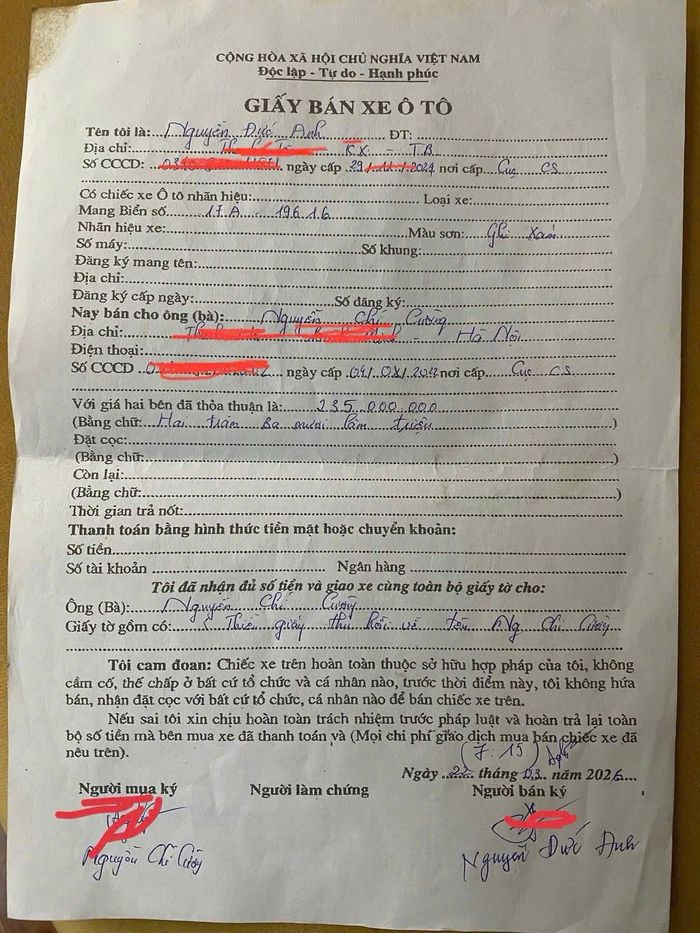 CỘNG HÒA XÃ HỘI CHỦ NGHĨA VIỆT NAM
Độc lập - Tự do - Hạnh phúc
GIẤY BÁN XE Ô TÔ
Tên tôi là: Nguyễn Đức Anh ĐT:
Địa chỉ: KX - TB
Số CCCD: ngày cấp nơi cấp Cục CS
Có chiếc xe Ô tô nhãn hiệu: Loại xe:
Mang Biển số 17A - 196 16
Nhãn hiệu xe: Màu sơn: Ghi Xám
Số máy: Số khung:
Đăng ký mang tên:
Địa chỉ:
Đăng ký cấp ngày: Số đăng ký:
Nay bán cho ông (bà): Nguyễn Chí Cường
Địa chỉ: - Hà Nội
Điện thoại:
Số CCCD ngày cấp nơi cấp Cục CS
Với giá hai bên đã thỏa thuận là: 235.000.000
(Bằng chữ: Hai trăm ba mươi lăm triệu
Đặt cọc:
(Bằng chữ: )
Còn lại:
(Bằng chữ: )
Thời gian trả nốt:
Thanh toán bằng hình thức tiền mặt hoặc chuyển khoản:
Số tiền
Số tài khoản Ngân hàng
Tôi đã nhận đủ số tiền và giao xe cùng toàn bộ giấy tờ cho:
Ông (Bà): Nguyễn Chí Cường
Giấy tờ gồm có: Thiếu giấy thu hồi về tên Ng Chí Cường
Tôi cam đoan: Chiếc xe trên hoàn toàn thuộc sở hữu hợp pháp của tôi, không
cầm cố, thế chấp ở bất cứ tổ chức và cá nhân nào, trước thời điểm này, tôi không hứa
bán, nhận đặt cọc với bất cứ tổ chức, cá nhân nào để bán chiếc xe trên.
Nếu sai tôi xin chịu hoàn toàn trách nhiệm trước pháp luật và hoàn trả lại toàn
bộ số tiền mà bên mua xe đã thanh toán và (Mọi chi phí giao dịch mua bán chiếc xe đã
nêu trên).
Ngày 22 tháng 03 năm 2026
Người mua ký Người làm chứng Người bán ký
Nguyễn Chí Cường Nguyễn Đức Anh